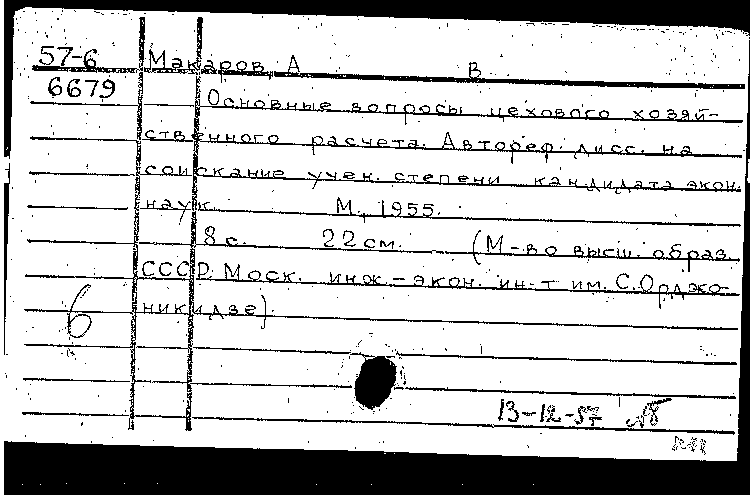 57-6 Макаров, А В
6679
Основные вопросы цехового хозяй-
ственного расчета. Автореф. дисс. на
соискание учен. степени кандидата экон.
наук. М., 1955.
18 с. 22 см. (М-во высш. образ.
СССР. Моск. инж.-экон. ин-т им. С. Орджо-
никидзе).
б
13-12-57